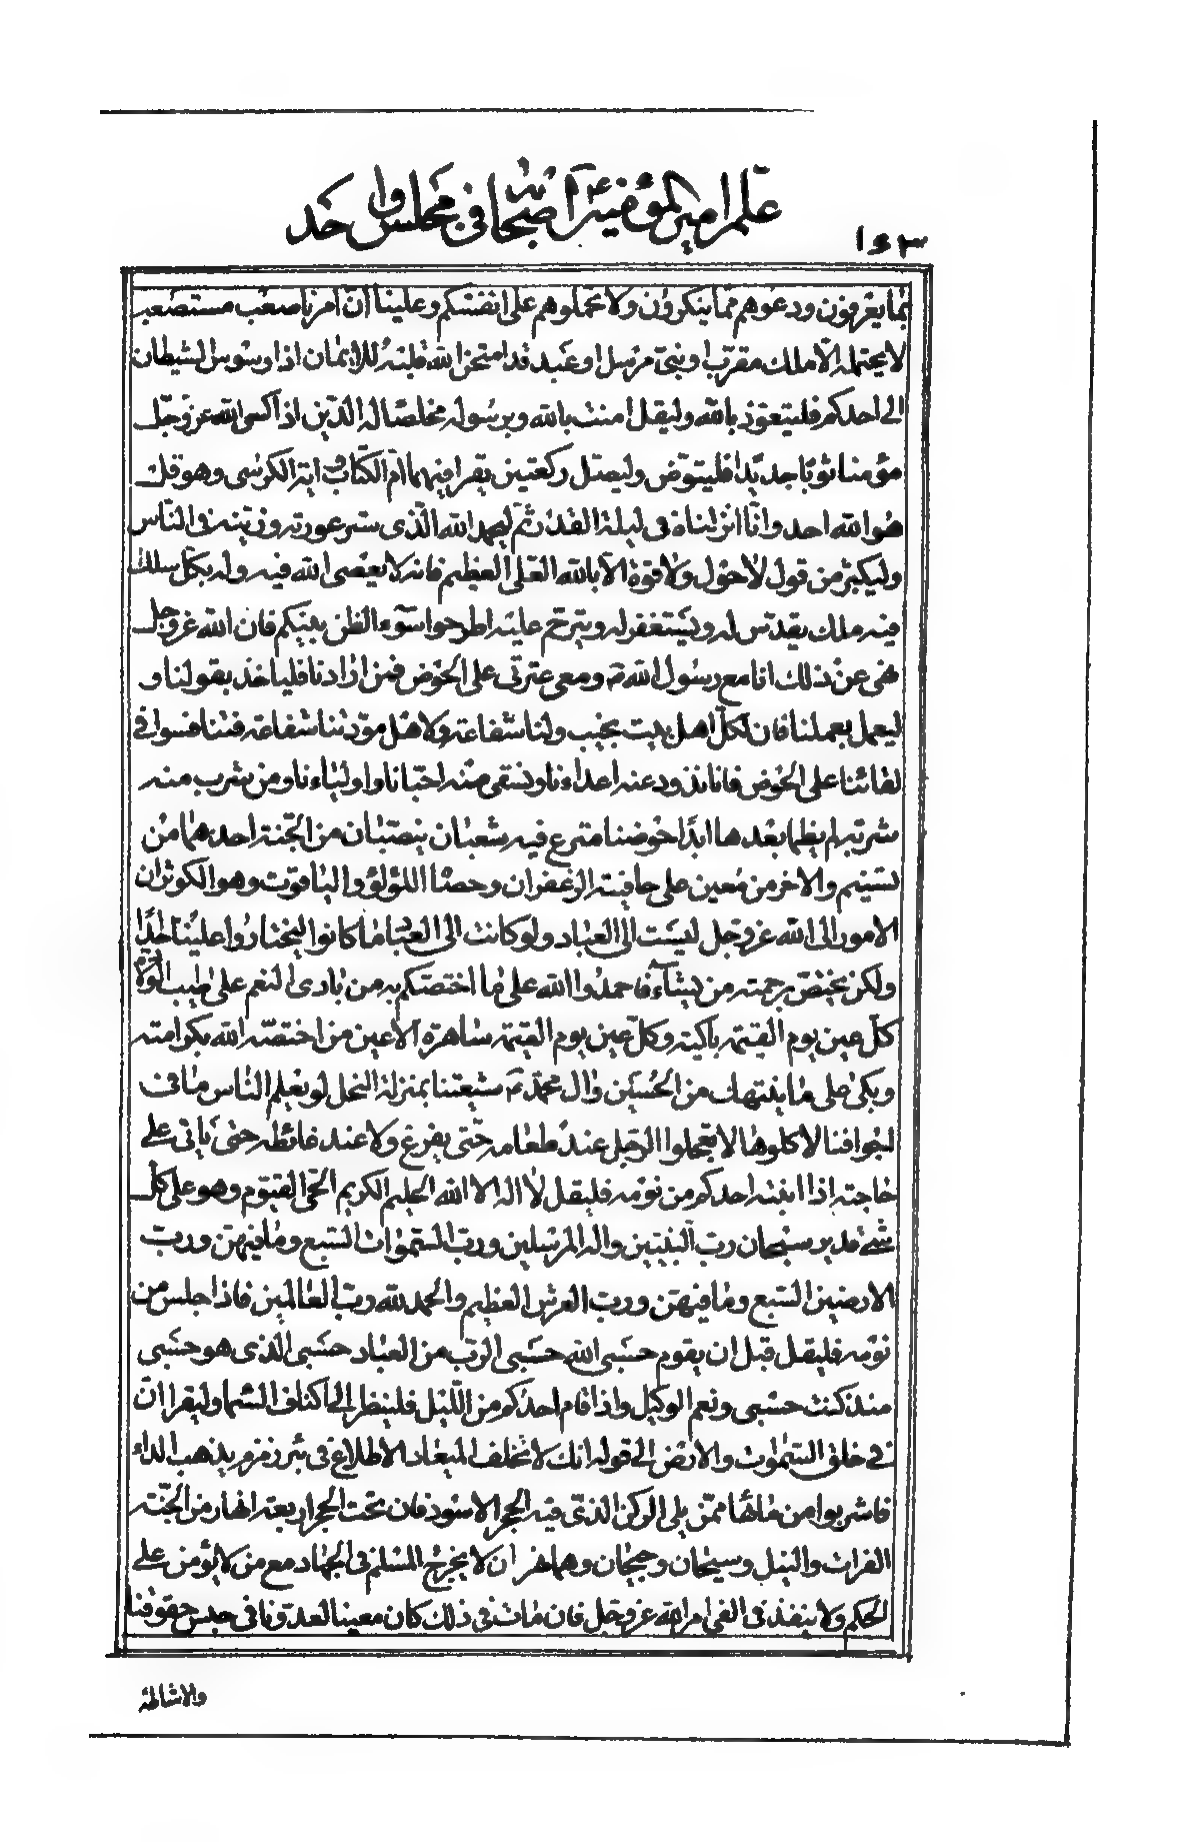 علّم امير المؤمنين ع اصحابه في مجلس واحد
١٤٣
بما يعرفون ودعوهم مما ينكرون ولا تحملوهم على انفسكم وعلينا انّ امرنا صعب مستصعب
لا يحتمله الا ملك مقرّب او نبيّ مرسل او عبد قد امتحن الله قلبه للايمان اذا وسوس الشيطان
الى احدكم فليتعوّذ بالله وليقل امنت بالله وبرسوله مخلصا له الدّين اذا اكسى الله عزّ وجلّ
مؤمنا ثوبا جديدا فليتوضّ وليصلّ ركعتين يقرا فيهما امّ الكتاب واية الكرسى وهو قل
هو الله احد وانّا انزلناه فى ليلة القدر ثمّ ليحمد الله الّذى ستر عورته وزيّنه فى النّاس
وليكثر من قول لا حول ولا قوة الا بالله العلى العظيم فانه لا يعصى الله فيه وله بكل سلك
فيه ملك يقدّس له ويستغفر له ويترحّم عليه اطرحوا سوء الظن بينكم فان الله عزّ وجلّ
نهى عن ذلك انا مع رسول الله ص ومعى عترتى على الحوض فمن ارادنا فلياخذ بقولنا و
ليعمل بعملنا فان لكلّ اهل بيت نجيب ولنا شفاعة ولاهل مودّتنا شفاعة فتنافسوا فى
لقائنا على الحوض فانا نذود عنه اعداءنا ونسقى منه احبّاءنا واولياءنا ومن شرب منه
شربة لم يظما بعدها ابدًا حوضنا مترع فيه شعبان ينصبّان من الجنّة احدهما من
تسنيم والاخر من معين على حافتيه الزعفران وحصاه اللؤلؤ والياقوت وهو الكوثر ان
الامور الى الله عزّ وجل ليست الى العباد ولو كانت الى العباد ما كانوا ليختاروا علينا احدًا
ولكن يختصّ برحمته من يشآء فاحمدوا الله على ما اختصّكم به من بادى النعم على طيب الولادة
كلّ عين يوم القيمة باكية وكلّ عين يوم القيمة ساهرة الا عين من اختصّه الله بكرامته
وبكى على ما ينتهك من الحسين وال محمّد ص شيعتنا بمنزلة النحل لو يعلم النّاس ما فى
اجوافنا لاكلوها لا تعجلوا الرّجل عند طعامه حتّى يفرغ ولا عند غائطه حتى ياتى على
حاجته اذا انتبه احدكم من نومه فليقل لا اله الا الله الحليم الكريم الحىّ القيّوم وهو على كلّ
شىء قدير سبحان ربّ النبيّين واله المرسلين وربّ السّموات السّبع وما فيهنّ وربّ
الارضين السّبع وما فيهنّ وربّ العرش العظيم والحمد لله ربّ العالمين فاذا جلس من
نومه فليقل قبل ان يقوم حسبى الله حسبى الربّ من العباد حسبى الّذى هو حسبى
منذ كنت حسبى ونعم الوكيل واذا قام احدكم من اللّيل فلينظر الى اكناف السّماء وليقرا انّ
فى خلق السّموات والارض الى قوله انك لا تخلف الميعاد الاطلاع فى بئر زمزم يذهب الداء
فاشربوا من مائها ممّا يلى الركن الذى فيه الحجر الاسود فان تحت الحجر اربعة انهار من الجنّة
الفرات والنيل وسيحان وجيحان وهما نهران لا يخرج المسلم فى الجهاد مع من لا يؤمن على
الحكم ولا ينفذ فى الفىء امر الله عزّ وجل فان مات فى ذلك كان معينا لعدوّنا فى حبس حقوقنا
والاشاطة